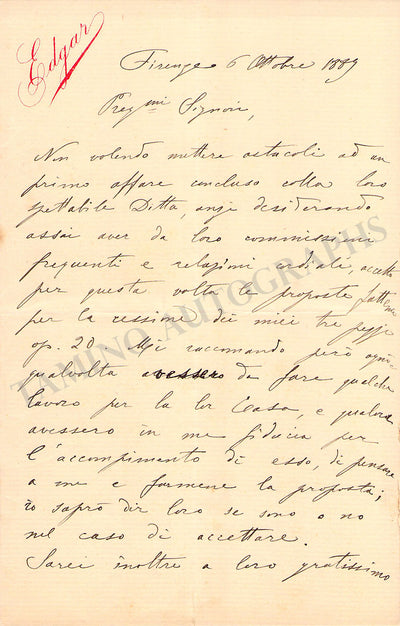 Edgar
Firenze 6 Ottobre 1889
Preg.mi Signori,
Non volendo mettere ostacoli ad un
primo affare concluso colla loro
spettabile Ditta, anzi desiderando
assai aver da loro commissioni
frequenti e relazioni cordiali, accetto
per questa volta le proposte fattemi
per la cessione dei miei tre pezzi
op. 20. Mi raccomando però ogni
qualvolta avessero da fare qualche
lavoro per la lor Casa, e qualora
avessero in me fiducia per
l'accompimento di esso, di pensare
a me e farmene la proposta;
io saprò dir loro se sono o no
nel caso di accettare.
Sarei inoltre a loro gratissimo
TAMINO AUTOGRAPHS